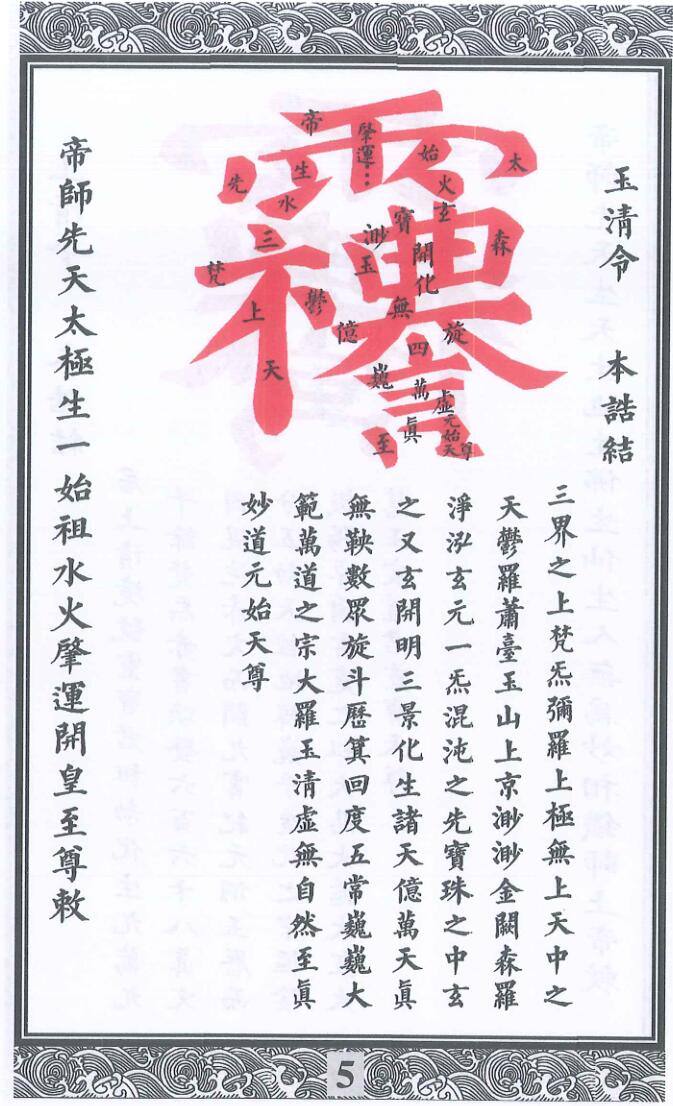 玉清令 本誥結
帝
肇運…
始
太
先
生
火
水
玄
寶
三
渺
森
梵
玉
開化
上
鬱
無
億
四
旋
天
巍
萬
虛
眞
元始天尊
至
三界之上梵炁彌羅上極無上天中之
天鬱羅蕭臺玉山上京渺渺金闕森羅
淨泓玄元一炁混沌之先寶珠之中玄
之又玄開明三景化生諸天億萬天眞
無鞅數眾旋斗曆箕回度五常巍巍大
範萬道之宗大羅玉清虛無自然至眞
妙道元始天尊
帝師先天太極生一始祖水火肇運開皇至尊敕
5